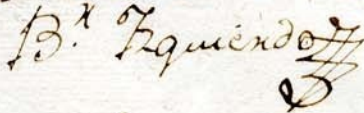 B.n Izquierdo